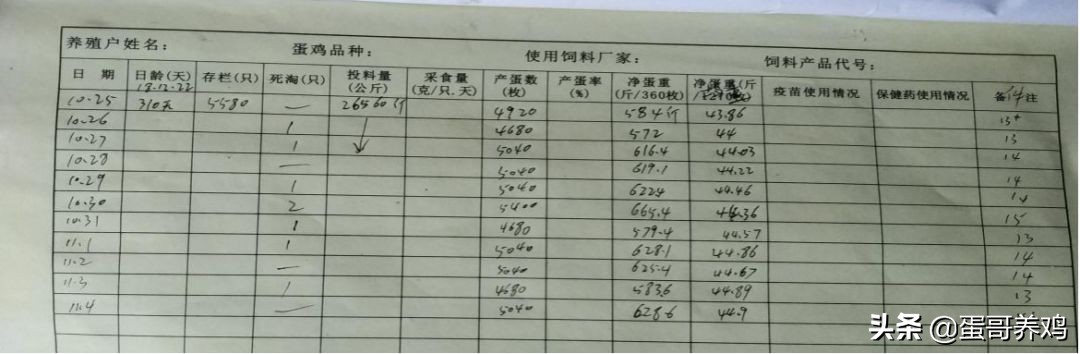 养殖户姓名： 蛋鸡品种： 使用饲料厂家： 饲料产品代号：
日 期 日龄(天) 存栏(只) 死淘(只) 投料量(公斤) 采食量(克/只.天) 产蛋数(枚) 产蛋率(%) 净蛋重(斤/360枚) 净蛋重(斤 疫苗使用情况 保健药使用情况 备件注
18.12.22
10.25 310天 5580 — 26560斤 4920 584斤 43.86 13+
10.26 1 4680 572 44 13
10.27 1 5040 616.4 44.03 14
10.28 — 5040 619.1 44.22 14
10.29 1 5040 622.4 44.46 14
10.30 2 5400 665.4 44.36 15
10.31 1 4680 579.4 44.57 13
11.1 1 5040 628.1 44.86 14
11.2 — 5040 625.4 44.67 14
11.3 1 4680 583.6 44.89 13
11.4 — 5040 628.6 44.9
头条 @蛋哥养鸡